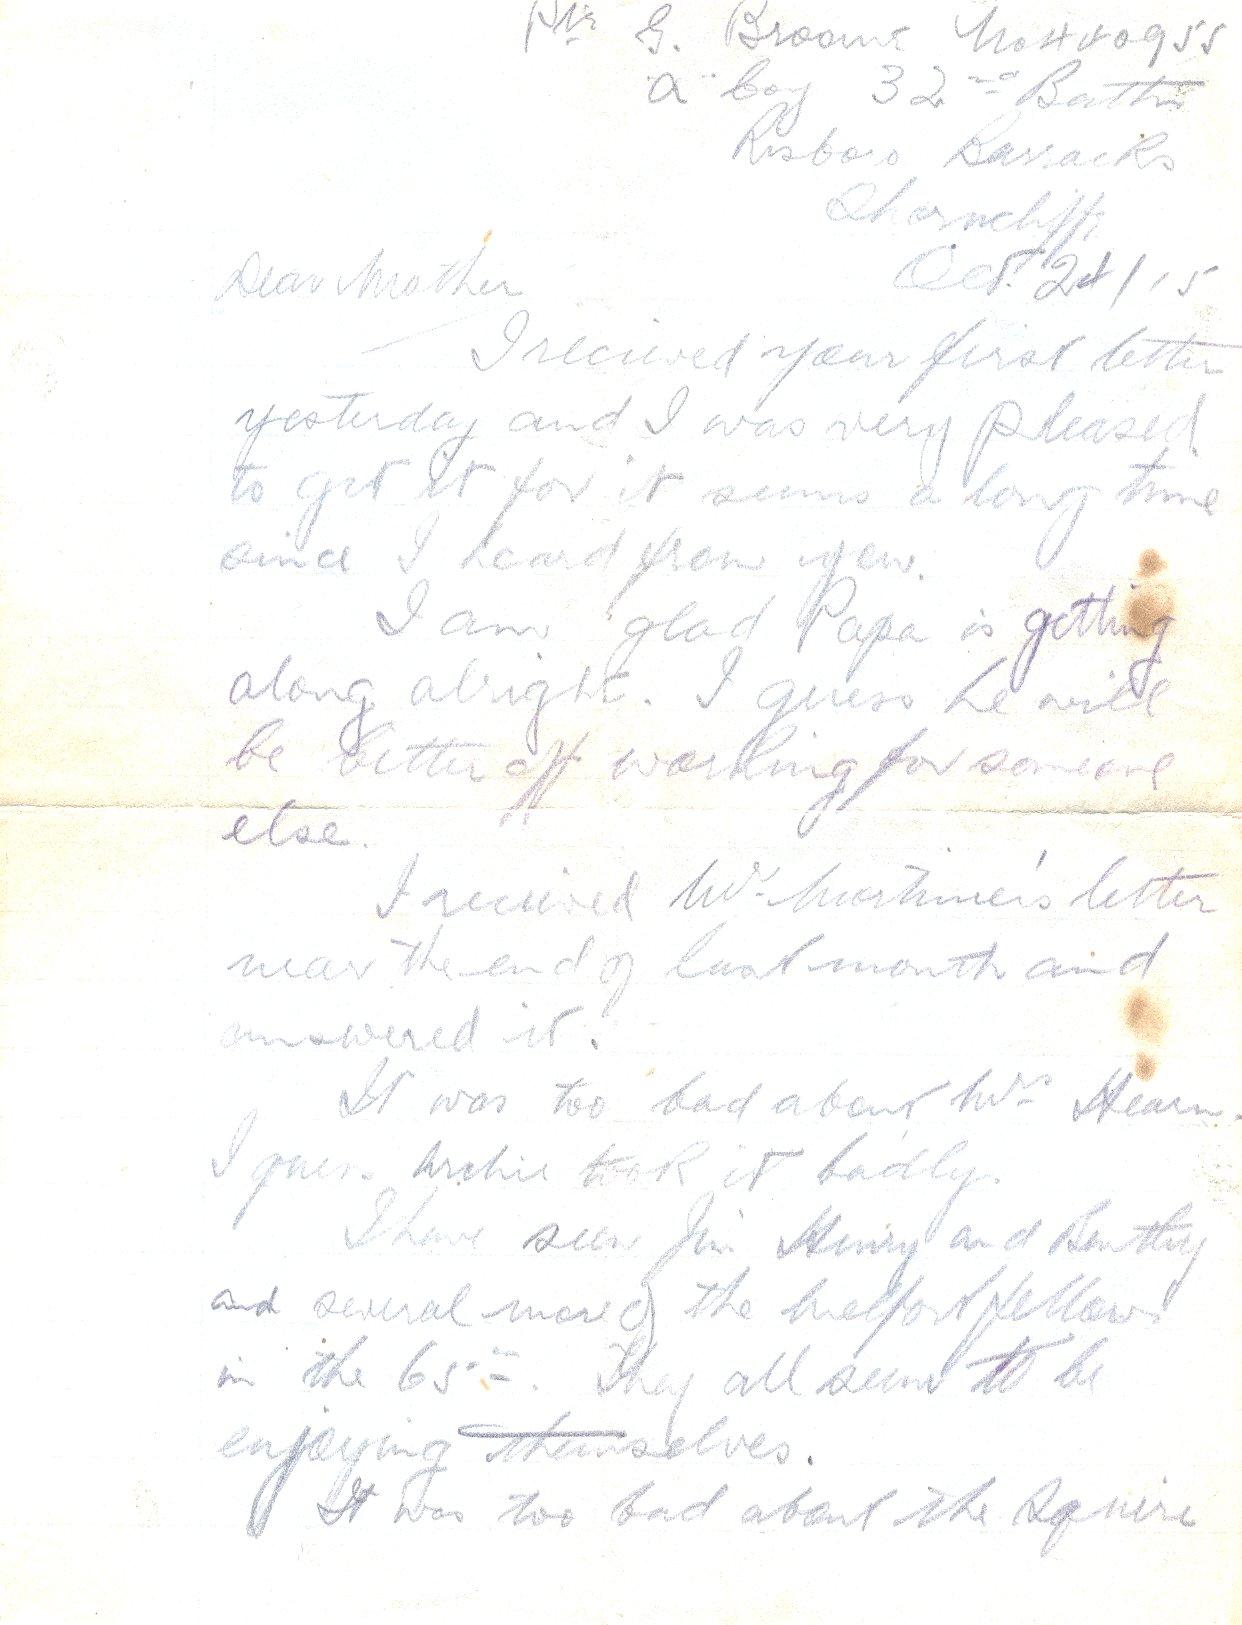 Pte G. Broome No 440955
"A" Coy 32nd Battn
Risboro Barracks
Shorncliffe
Oct. 24/15
Dear Mother
I recieved your first letter
yesterday and I was very pleased
to get it for it seems a long time
since I heard from you.
I am glad Papa is getting
along alright. I guess he will
be better off working for someone
else.
I recieved Mr. Mortimer's letter
near the end of last month and
answered it.
It was too bad about Mrs Hearn.
I guess Archie took it badly.
I have seen Jim Henry and
and several more of the Melfort fellows
in the 65th. They all seem to be
enjoying themselves.
It was too bad about the Squire